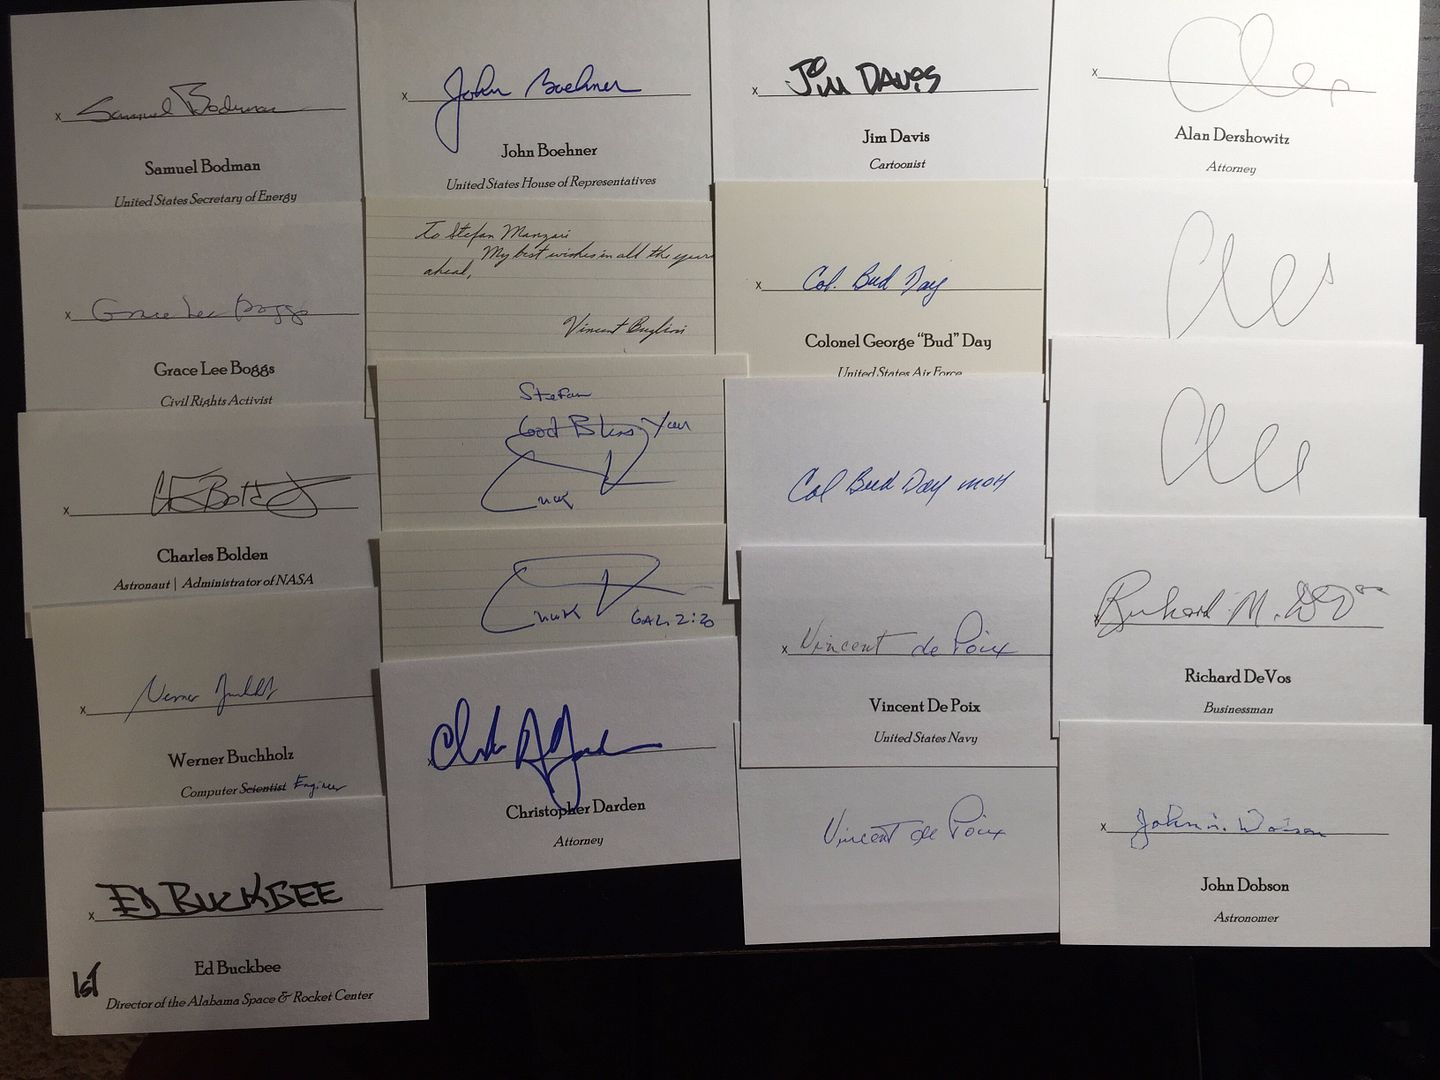 x Samuel Bodman
Samuel Bodman
United States Secretary of Energy
x Grace Lee Boggs
Grace Lee Boggs
Civil Rights Activist
x
Charles Bolden
Astronaut | Administrator of NASA
x Werner Buchholz
Werner Buchholz
Computer Scientist Engineer
x ED BUCKBEE
Ed Buckbee
1st
Director of the Alabama Space & Rocket Center
x John Boehner
John Boehner
United States House of Representatives
To Stefan Manzari
My best wishes in all the years
ahead,
Vincent Bugliosi
Stefan
God Bless You
Chuck
Chuck
GAL 2:20
x
Christopher Darden
Attorney
x JIM DAVIS
Jim Davis
Cartoonist
x Col. Bud Day
Colonel George "Bud" Day
United States Air Force
Col Bud Day MOH
x Vincent de Poix
Vincent De Poix
United States Navy
Vincent de Poix
x
Alan Dershowitz
Attorney
x Richard M. DeVos
Richard DeVos
Businessman
x John L. Dobson
John Dobson
Astronomer